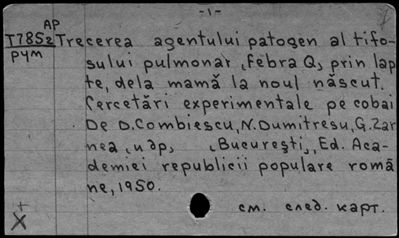 -1-
AP
T785z Trecerea agentului patogen al tifo-
рум sului pulmonar (Febra Q) prin lap
te, dela mamă la noul născut.
Cercetări experimentale pe cobai
De D. Combiescu, N. Dumitresu, G. Zar
nea и др. (Bucureşti), Ed. Aca-
demiei republicii populare româ
ne, 1950.
+
X см. след. карт.